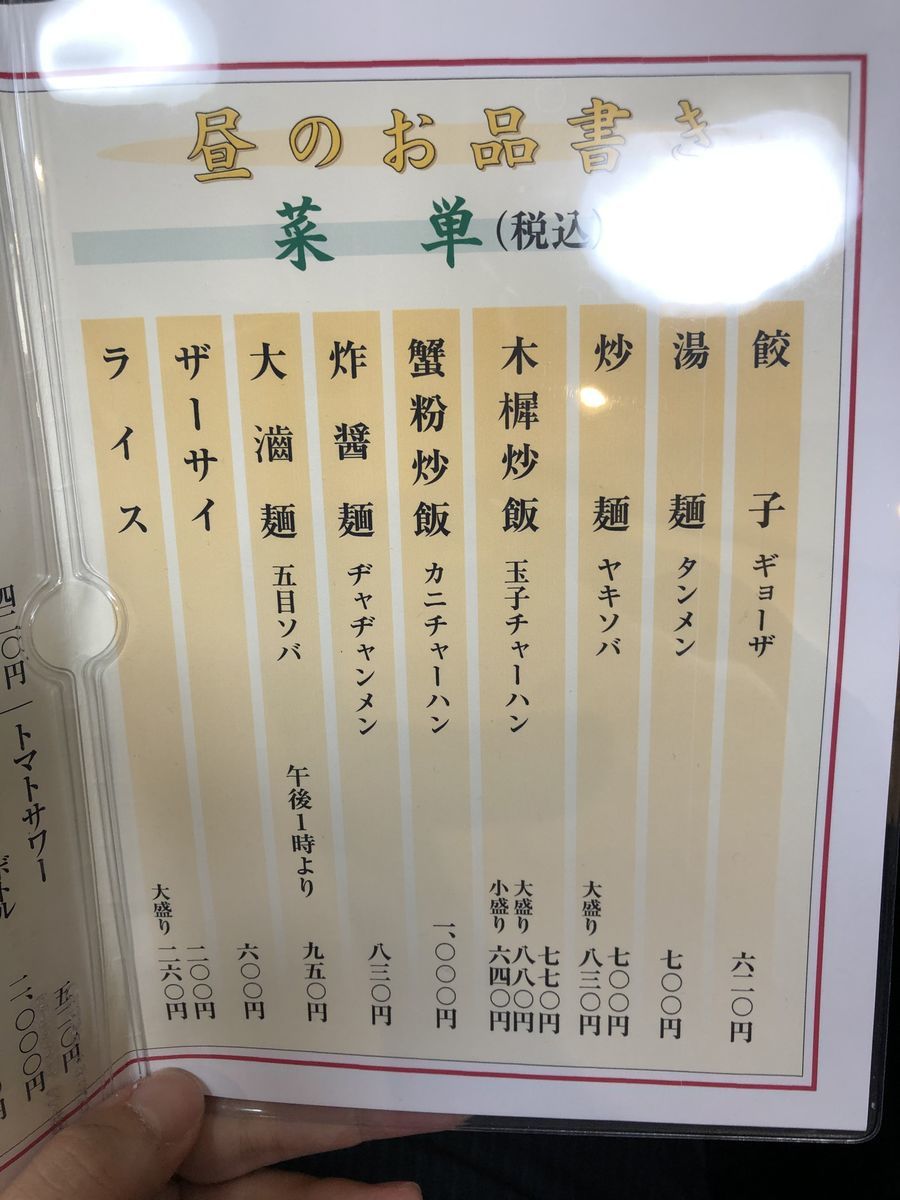 昼のお品書き
菜単(税込)
餃子 ギョーザ 六二〇円
湯麺 タンメン 七〇〇円
炒麺 ヤキソバ 七〇〇円
大盛り 八三〇円
木樨炒飯 玉子チャーハン 七七〇円
大盛り 八八〇円
小盛り 六四〇円
蟹粉炒飯 カニチャーハン 一、〇〇〇円
炸醤麺 ヂャヂャンメン 八三〇円
大滷麺 五目ソバ 午後1時より 九五〇円
ザーサイ 六〇〇円
ライス 二〇〇円
大盛り 二六〇円
四二〇円
トマトサワー 五二〇円
ボトル 二、〇〇〇円